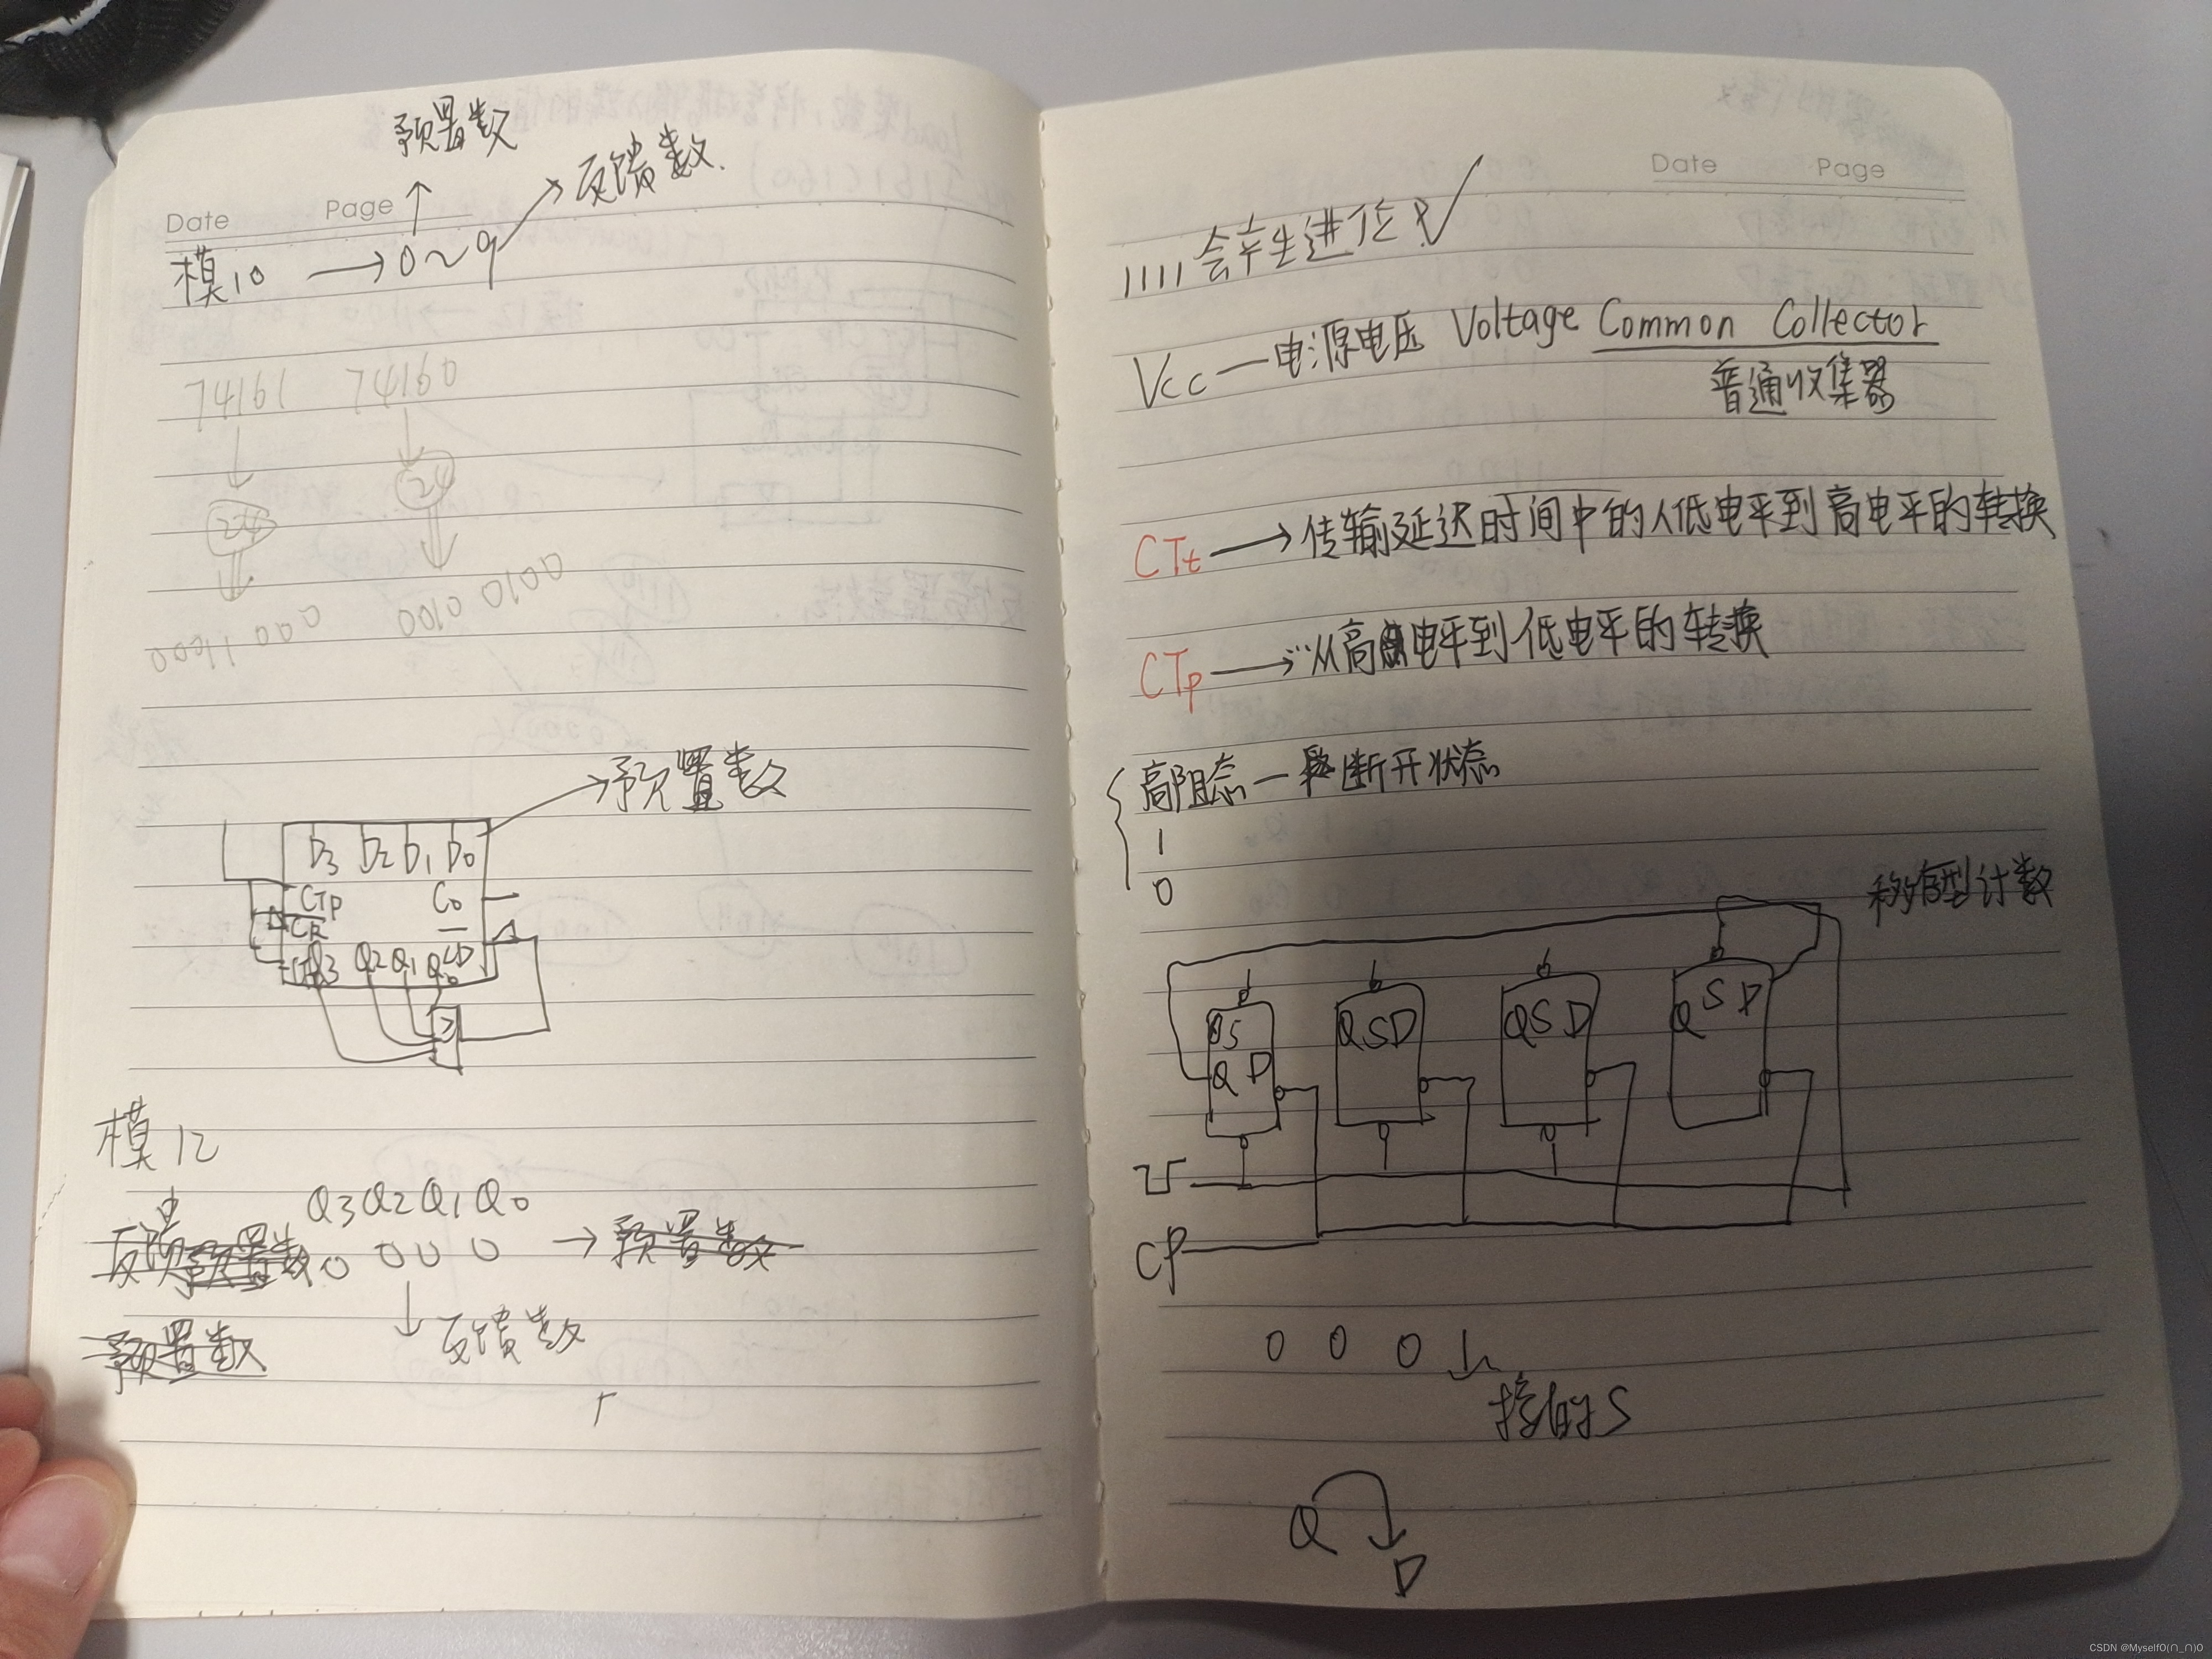 预置数
反馈数.
Date Page
模10 → 0~9
74161 74160
24 24
0010 0100
预置数
D3 D2 D1 D0
CTP C0
CR LD
Q3 Q2 Q1 Q0
模12
Q3 Q2 Q1 Q0
反馈 预置数 0 0 0 0 → 预置数
预置数 反馈数
Date Page
1111会产生进位
Vcc — 电源电压 Voltage Common Collector
普通收集器
CTt → 传输延迟时间中的从低电平到高电平的转换
CTp → …从高电平到低电平的转换
高阻态 — 断开状态
1
0
移存型计数
QSD QSD QSD
QD
CP
0 0 0
接的S
Q
D
CSDN @MyselfO(∩_∩)O